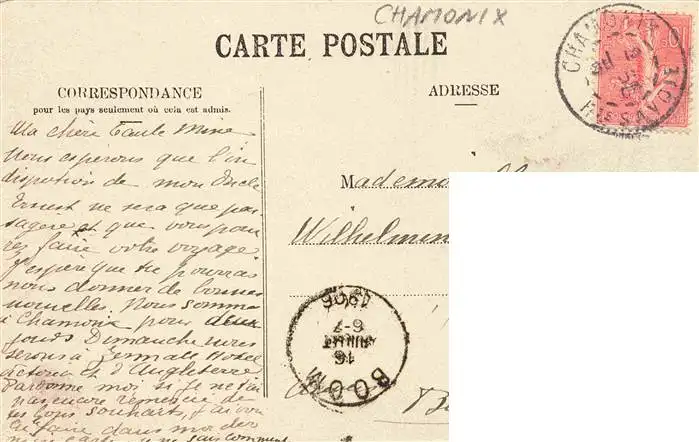 CHAMONIX
CARTE POSTALE
CORRESPONDANCE
pour les pays seulement où cela est admis.
ADRESSE
Ma chère Tante Mine
Nous esperons que l'in
dispotion de mon Oncle
Ernest ne sera que pas
sagère et que vous pour
rez faire votre voyage
J'espère que tu pourras
nous donner de bonnes
nouvelles. Nous sommes
à Chamonix pour deux
jours Dimanche nous
serons à Zermatt Hotel
Victoria et d'Angleterre
Pardonne moi si je ne t'ai
pas encore remerciée de
tes bons souhaits, j'ai
faire dans
carte
Mademo
Wilhelmin
CHAMONIX
HTE SAVOIE
BOOM
16
JUILLET
6-7
1906